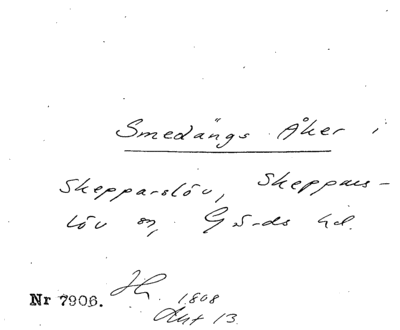 Smedängs Åker i
Skepparslöv, Skeppars-
löv sn, Gärds hd.
Nr 7906. 1808
Akt 13.